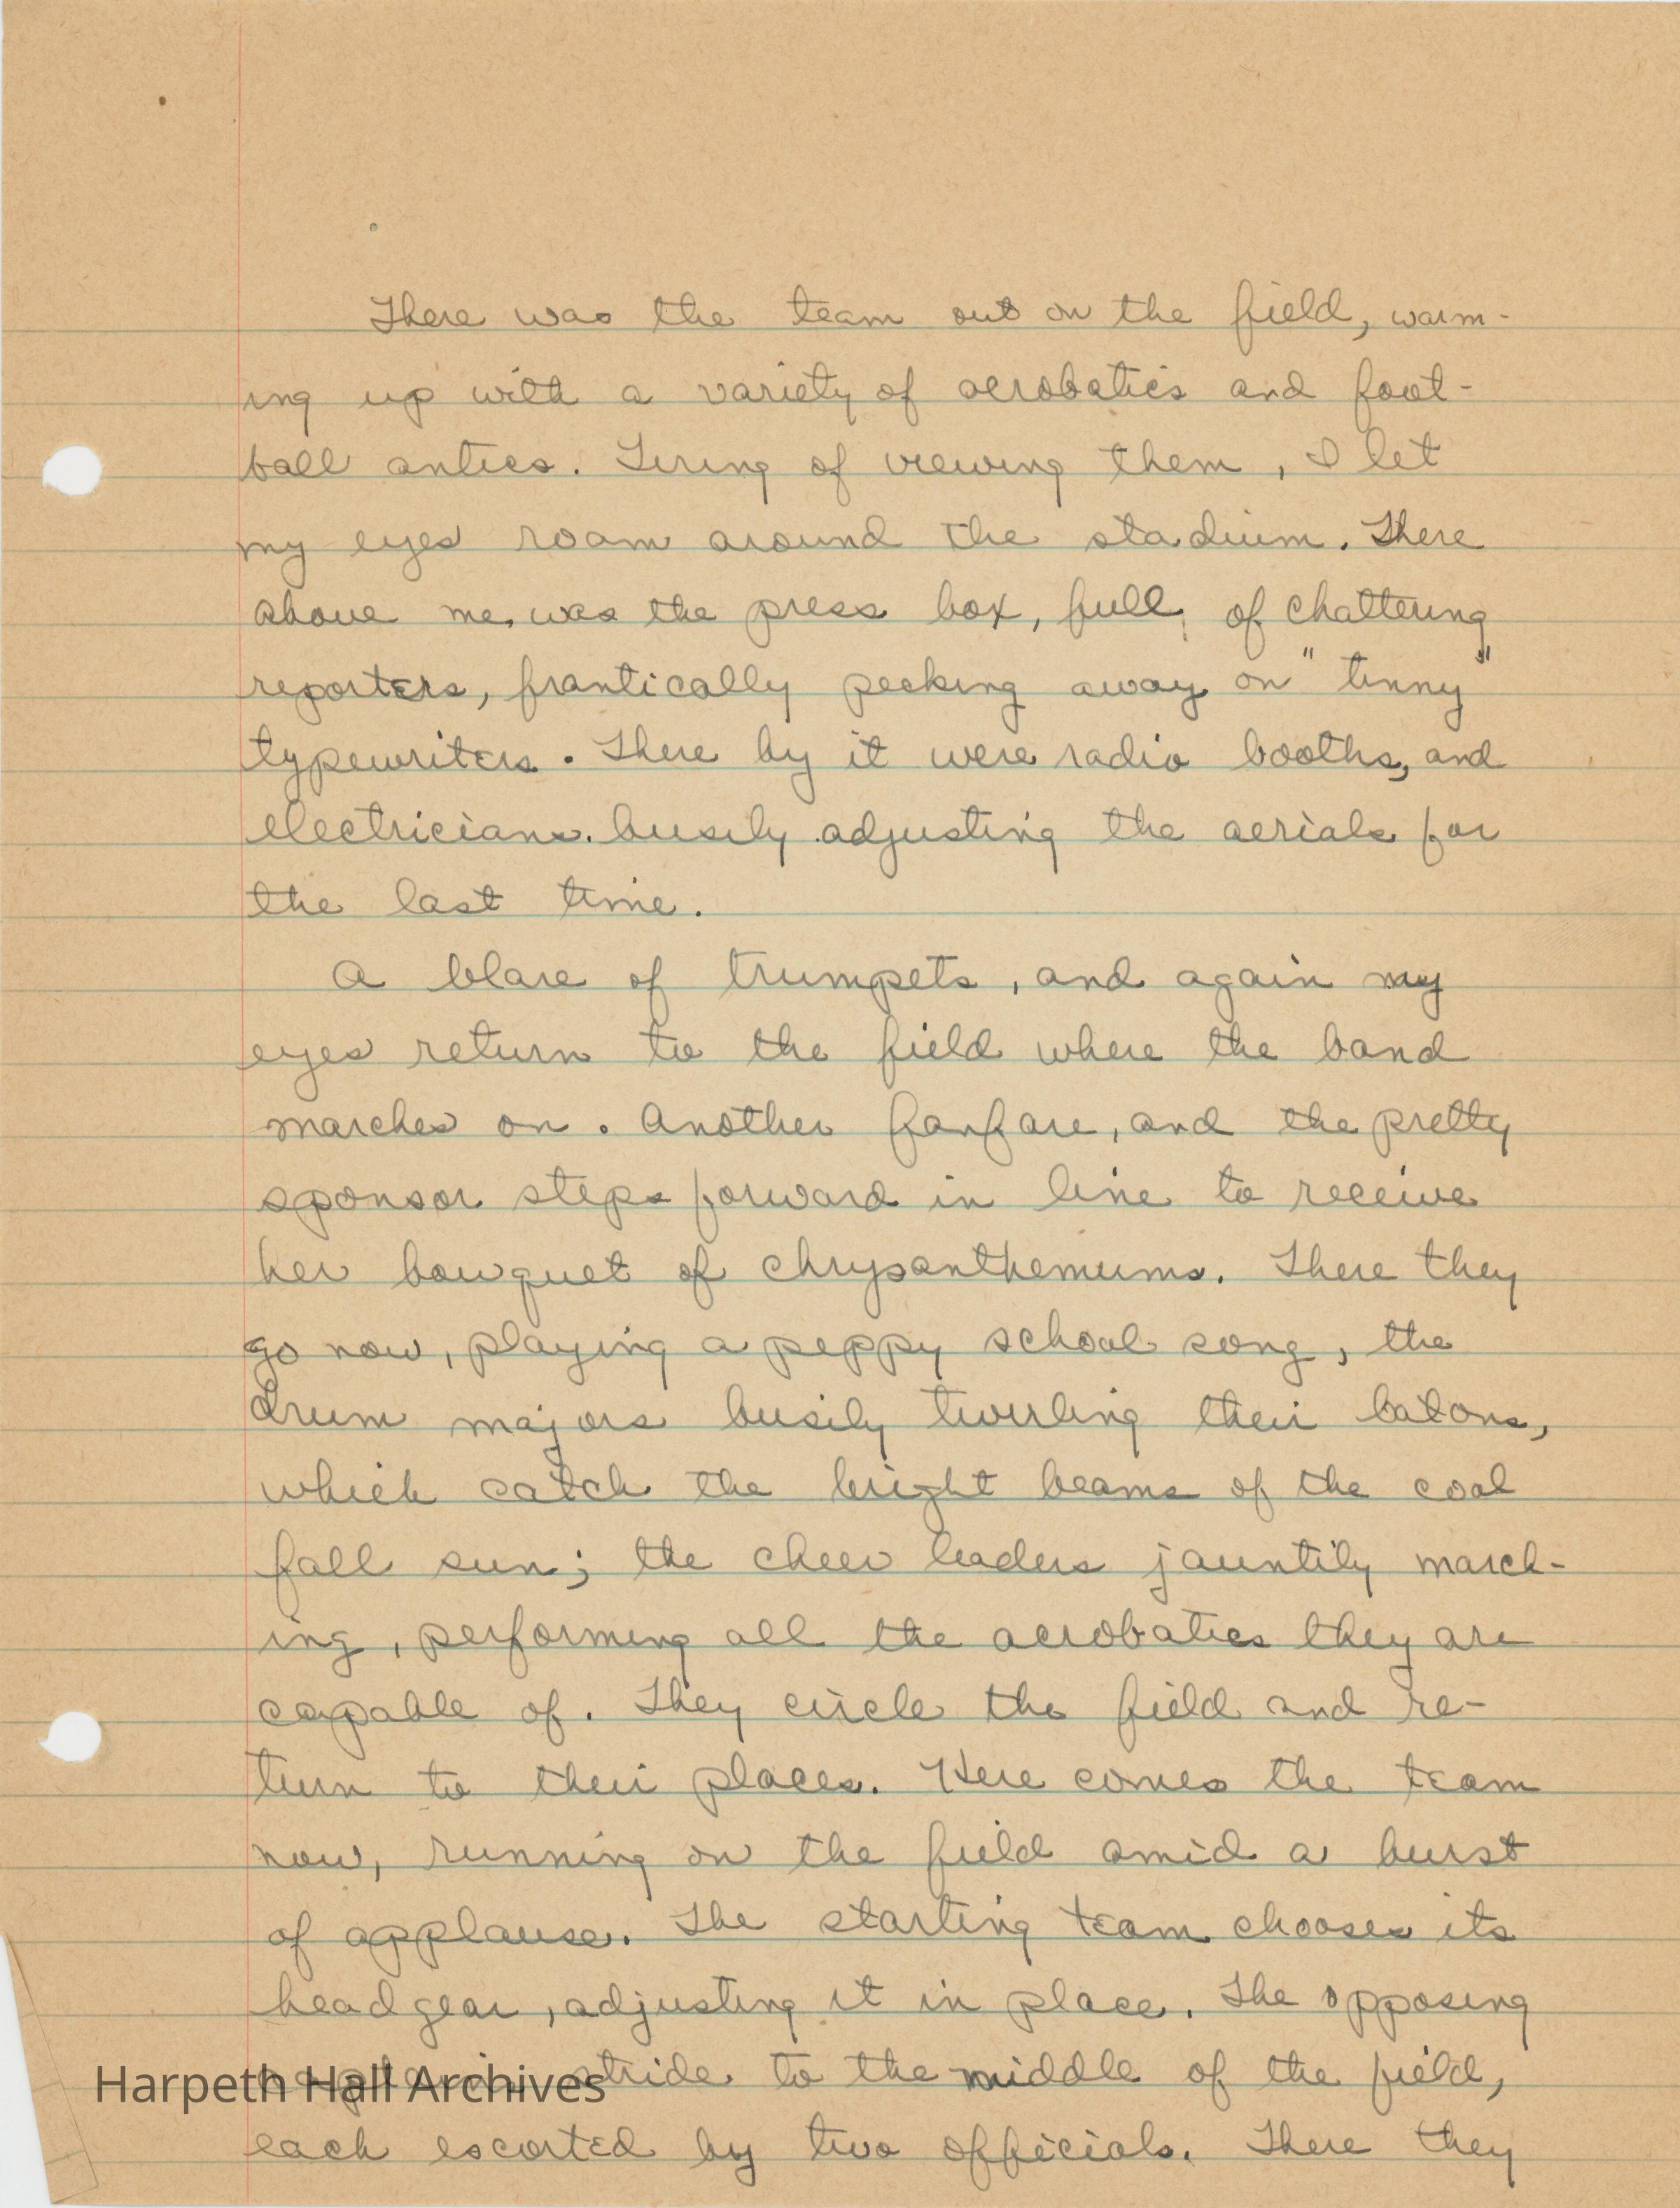 There was the team out on the field, warm-
ing up with a variety of acrobatics and foot-
ball antics. Tiring of viewing them, I let
my eyes roam around the stadium. There
above me, was the press box, full, of chattering
reporters, frantically pecking away on "tinny"
typewriters. There by it were radio booths, and
electricians busily adjusting the aerials for
the last time.
A blare of trumpets, and again my
eyes return to the field where the band
marches on. Another fanfare, and the pretty
sponsor steps forward in line to receive
her bowquet of chrysanthemums. There they
go now, playing a peppy school song, the
drum majors busily twirling their batons,
which catch the bright beams of the cool
fall sun; the cheer leaders jauntily march-
ing, performing all the acrobatics they are
capable of. They circle the field and re-
turn to their places. Here comes the team
now, running on the field amid a burst
of applause. The starting team chooses its
head gear, adjusting it in place. The opposing
stride to the middle of the field,
Harpeth Hall Archives
each escorted by two officials. There they